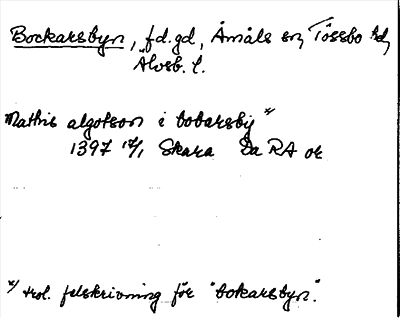 Bockarsbyn, fd. gd, Åmåls sn, Tössbo hd,
Älvsb. l.
Mathis algotson i bobarsby x/
1397 12/1 Skara Da RA or
x/ trol. felskrivning för "bokarsbyn".